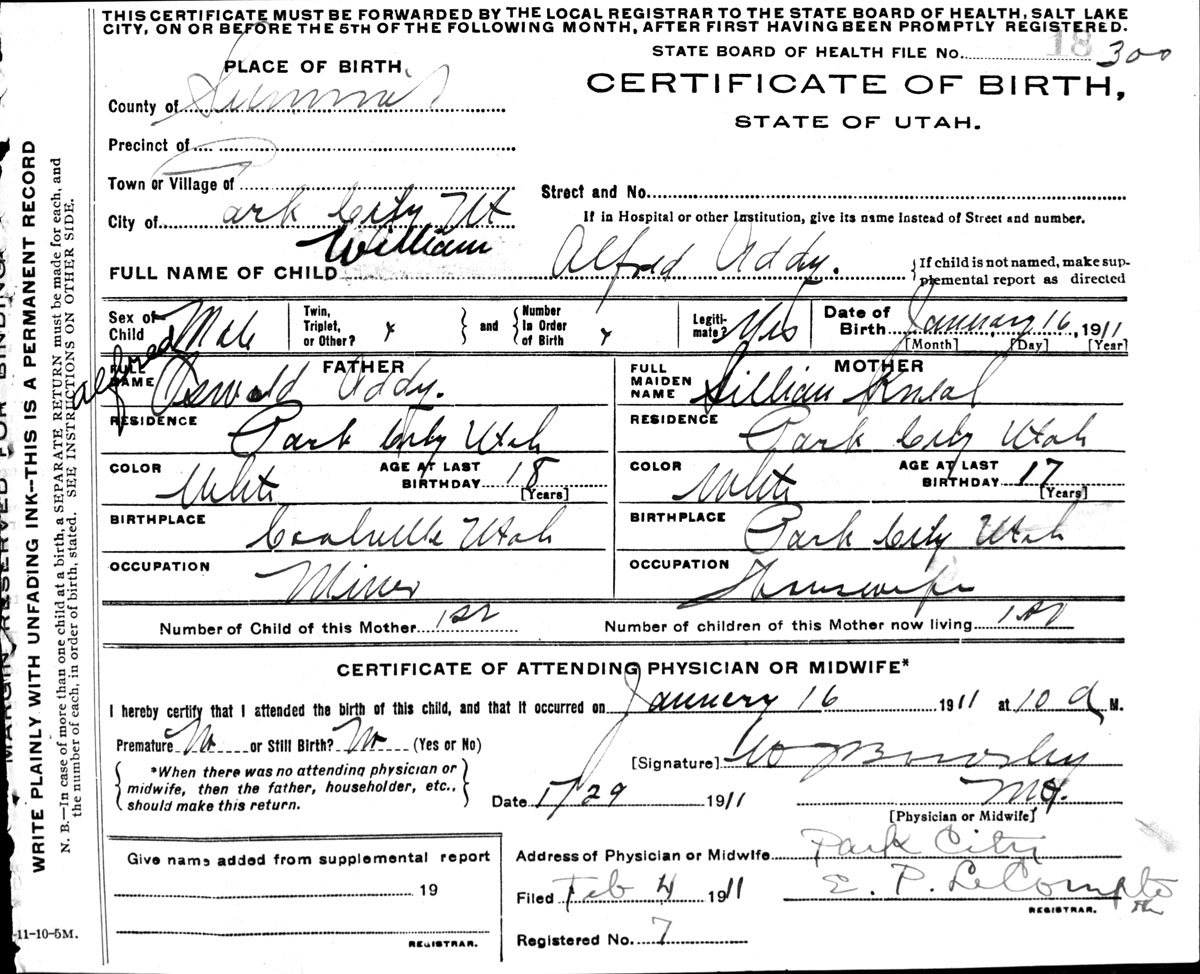 THIS CERTIFICATE MUST BE FORWARDED BY THE LOCAL REGISTRAR TO THE STATE BOARD OF HEALTH, SALT LAKE
CITY, ON OR BEFORE THE 5TH OF THE FOLLOWING MONTH, AFTER FIRST HAVING BEEN PROMPTLY REGISTERED.
STATE BOARD OF HEALTH FILE No. 18 300
PLACE OF BIRTH,
CERTIFICATE OF BIRTH,
STATE OF UTAH.
County of Summit
Precinct of
Town or Village of
Street and No.
City of Park City Ut
If in Hospital or other Institution, give its name instead of Street and number.
FULL NAME OF CHILD William Alfred Addy.
If child is not named, make sup-
plemental report as directed
Sex of Child Male
Twin, Triplet, or Other? x
and
Number In Order of Birth x
Legiti-mate? Yes
Date of Birth January 16, 1911
[Month] [Day] [Year]
FATHER
FULL NAME Alfred Oswald Addy.
RESIDENCE Park City Utah
COLOR White
AGE AT LAST BIRTHDAY 18
[Years]
BIRTHPLACE Coalville Utah
OCCUPATION Miner
MOTHER
FULL MAIDEN NAME Lillian Kneal
RESIDENCE Park City Utah
COLOR White
AGE AT LAST BIRTHDAY 17
[Years]
BIRTHPLACE Park City Utah
OCCUPATION Housewife
Number of Child of this Mother 1st
Number of children of this Mother now living 1st
CERTIFICATE OF ATTENDING PHYSICIAN OR MIDWIFE*
I hereby certify that I attended the birth of this child, and that it occurred on January 16 1911 at 10 a M.
Premature No or Still Birth? No (Yes or No)
*When there was no attending physician or
midwife, then the father, householder, etc.,
should make this return.
[Signature]
Date 1/29 1911
MD.
[Physician or Midwife]
Give name added from supplemental report
19
REGISTRAR.
Address of Physician or Midwife Park City
Filed Feb 4 1911
E. P. LeCompte
REGISTRAR.
Registered No. 7
MARGIN RESERVED FOR BINDING
WRITE PLAINLY WITH UNFADING INK—THIS IS A PERMANENT RECORD
N. B.—In case of more than one child at a birth, a SEPARATE RETURN must be made for each, and
the number of each, in order of birth, stated. SEE INSTRUCTIONS ON OTHER SIDE.
-11-10-5M.